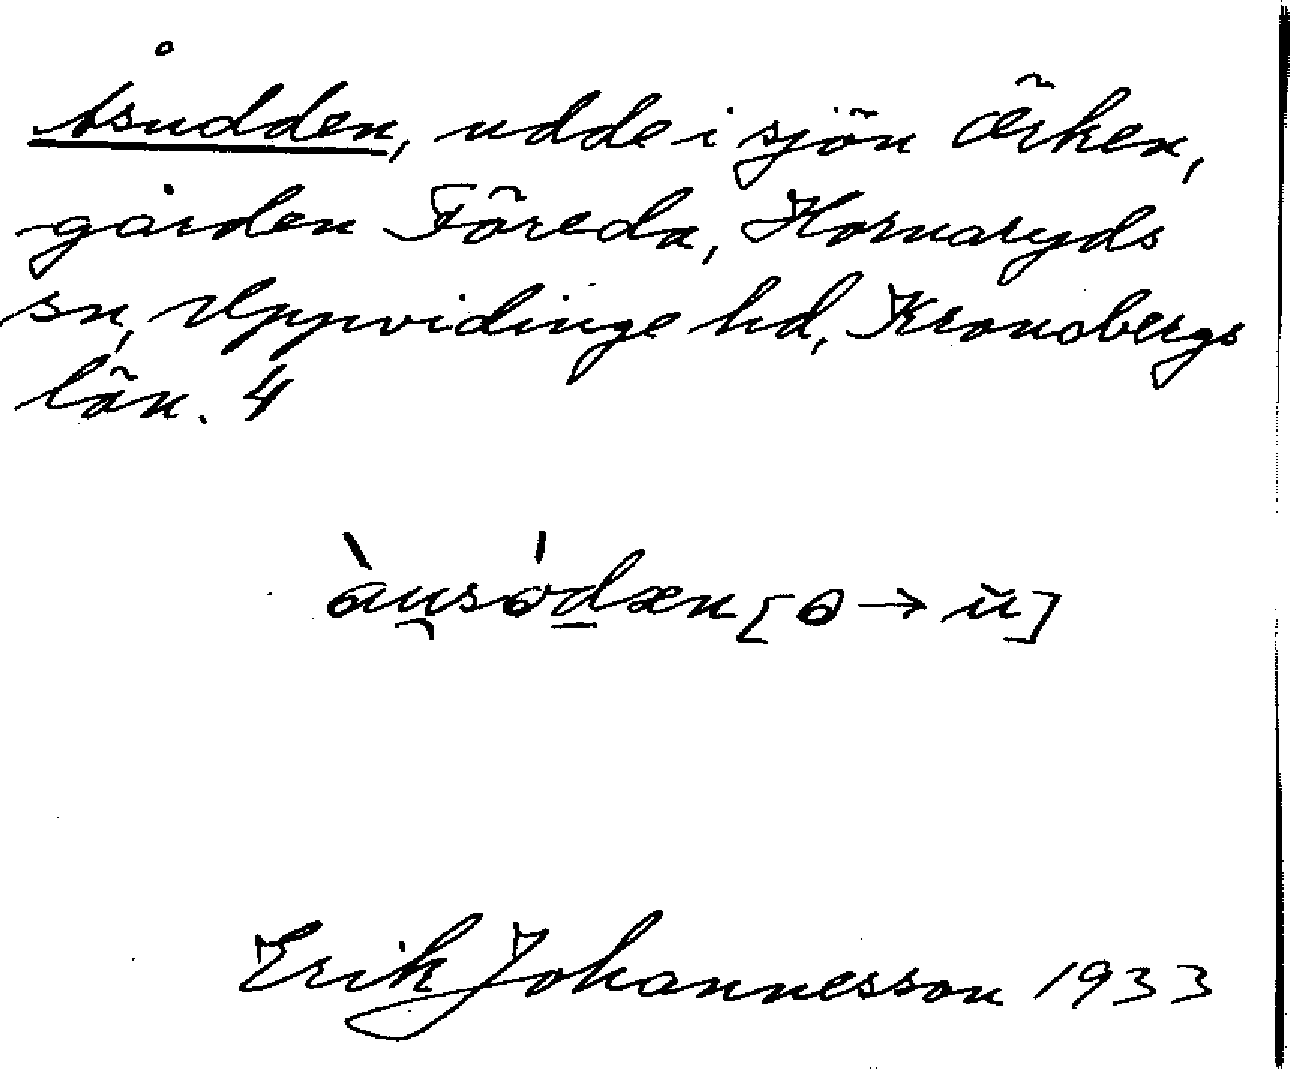 Åsudden, udde i sjön Örken,
gården Föreda, Hornaryds
sn, Uppvidinge hd, Kronobergs
län. 4
Erik Johannesson 1933